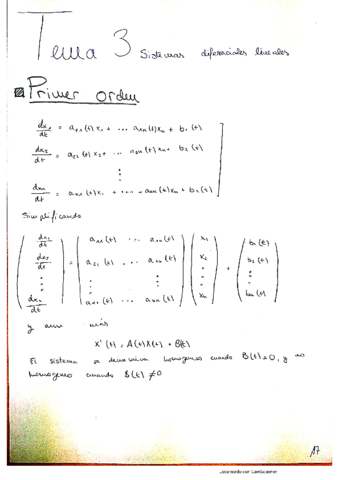 Tema 3 Sistemas diferenciales lineales
Primer orden
dx₁/dt = a₁₁(t)x₁ + ... a₁n(t)xn + b₁(t)
dx₂/dt = a₂₁(t)x₂ + ... a₂n(t)xn + b₂(t)
⋮
dxn/dt = an₁(t)x₁ + ... ann(t)xn + bn(t)
Simplificando
( dx₁/dt ) = ( a₁₁(t) ... a₁n(t) ) ( x₁ ) + ( b₁(t) )
( dx₂/dt ) ( a₂₁(t) ... a₂n(t) ) ( x₂ ) ( b₂(t) )
⋮ ⋮ ⋮ ⋮ ⋮
( dxn/dt ) ( an₁(t) ... ann(t) ) ( xn ) ( bn(t) )
y aun más
X'(t) = A(t)X(t) + B(t)
El sistema se denomina homogeneo cuando B(t)=0, y no
homogeneo cuando B(t) ≠ 0
17
Escaneado con CamScanner